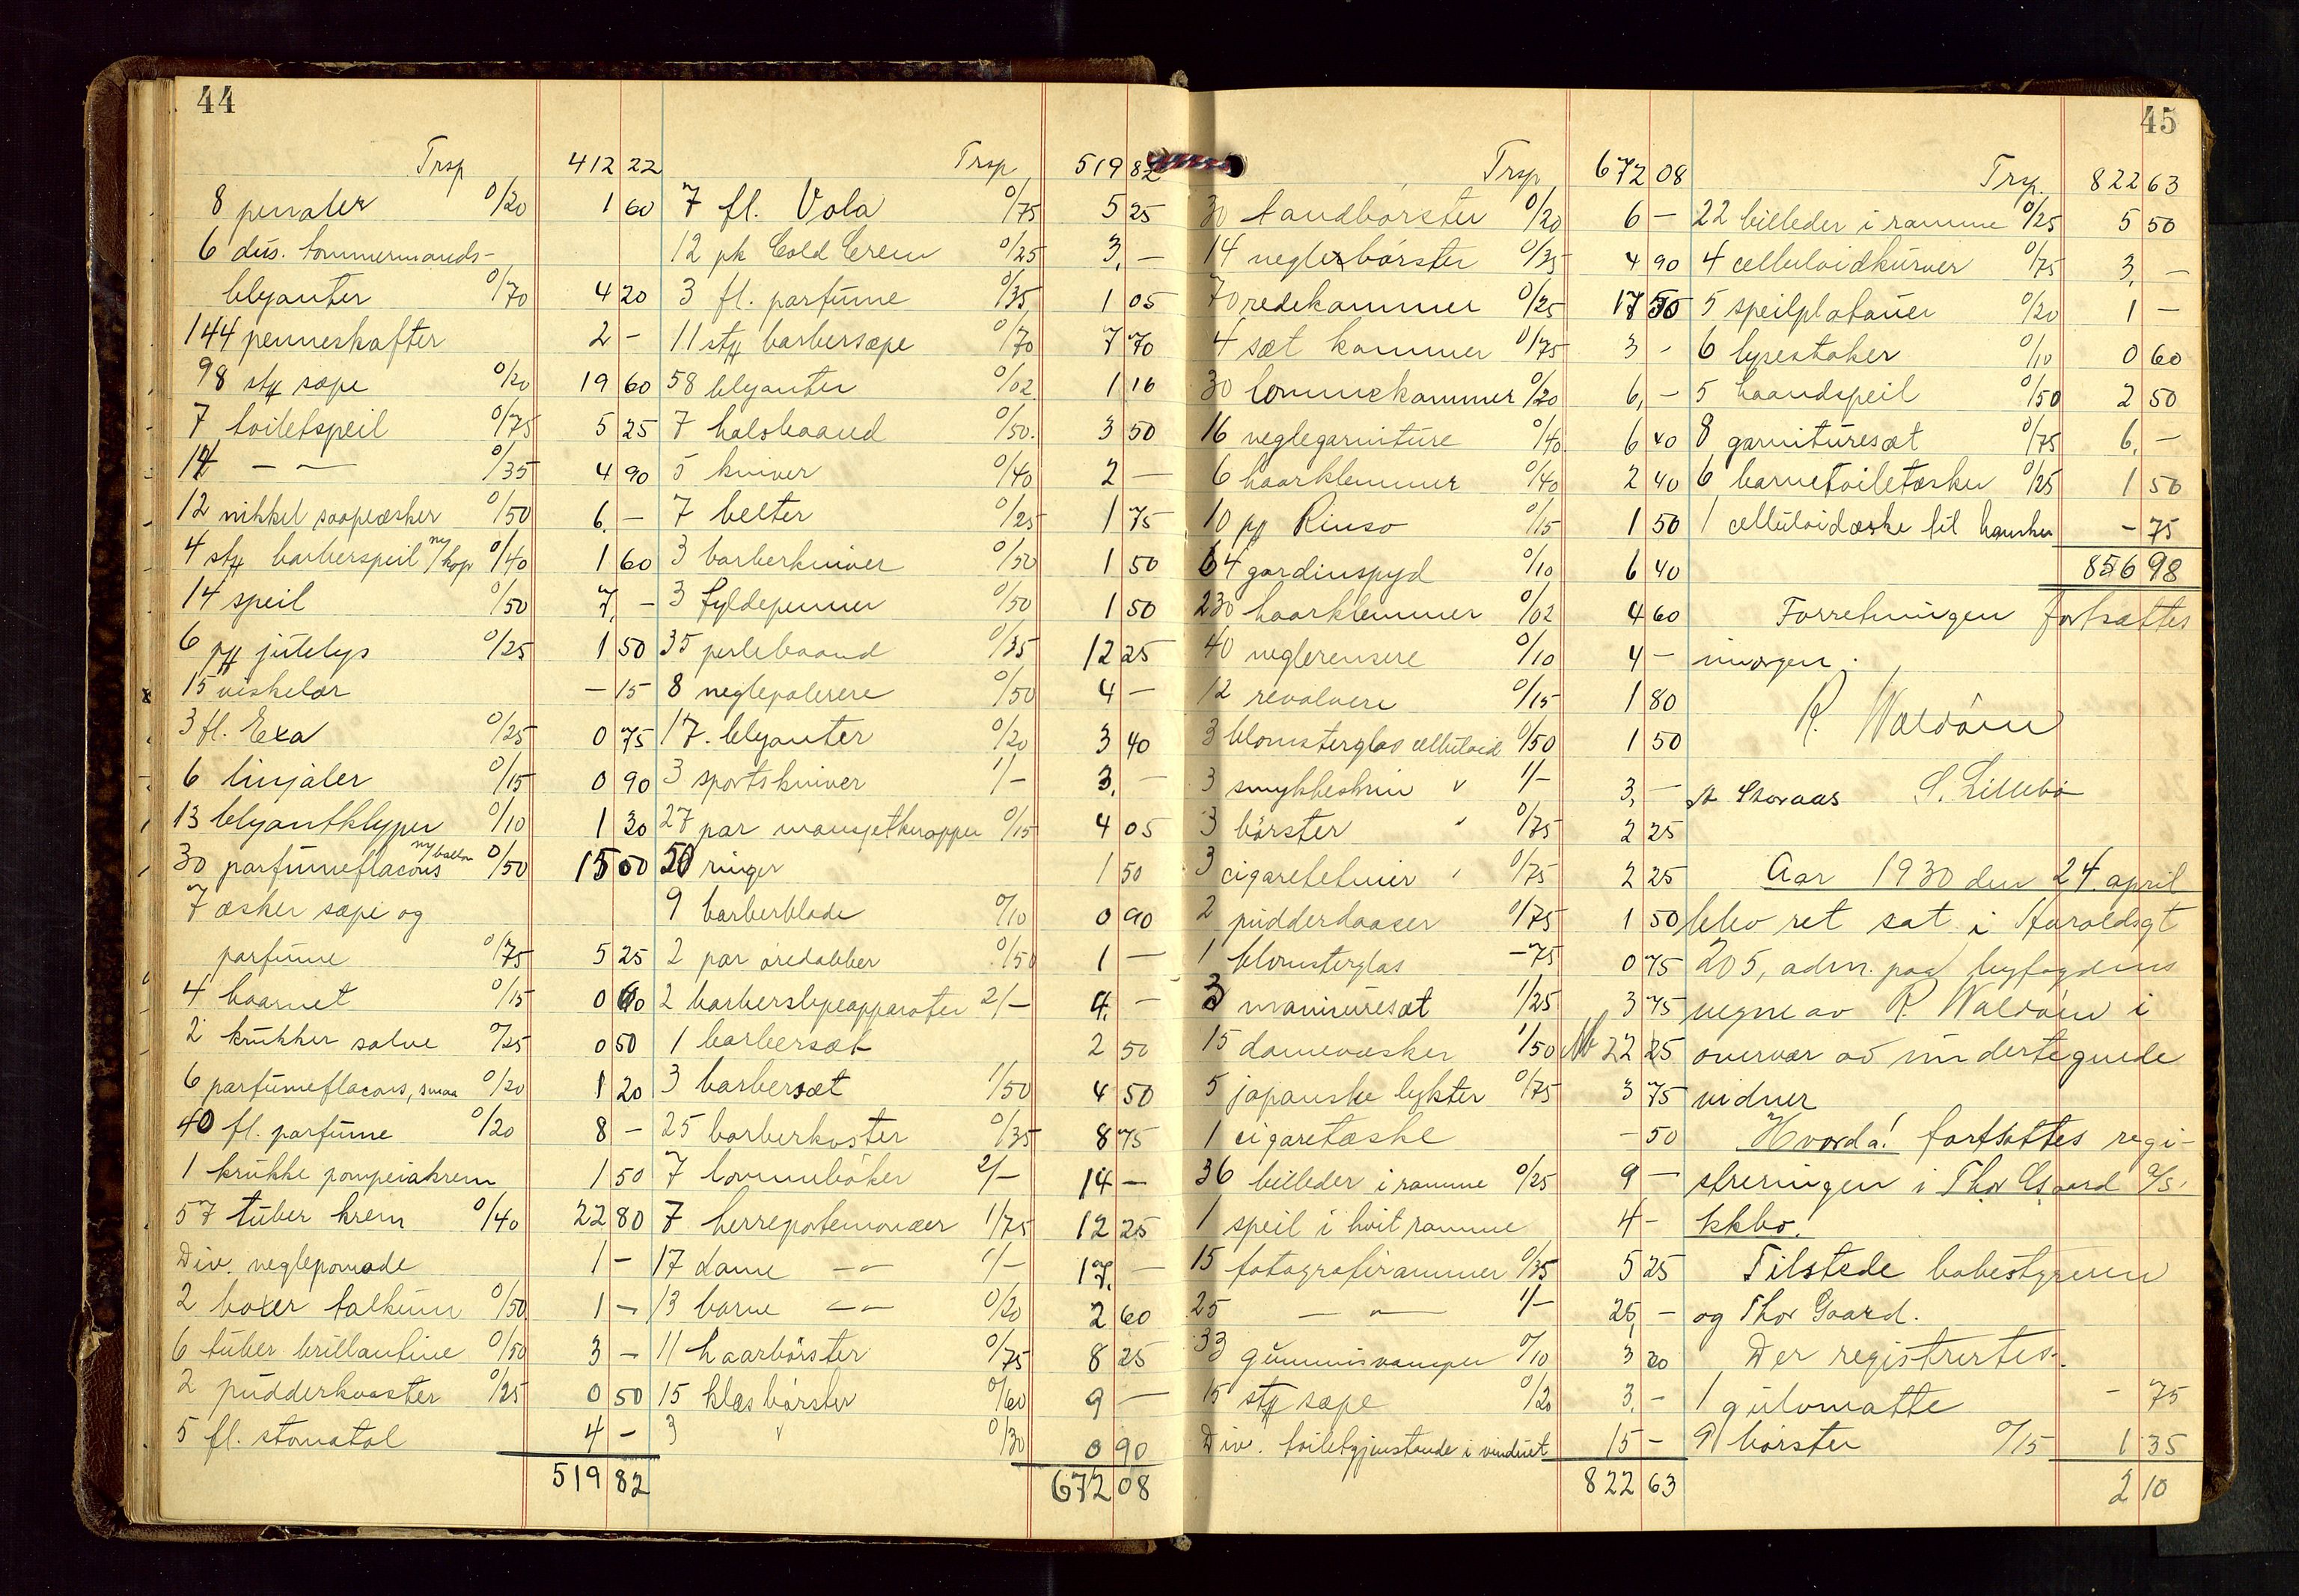 44
Trsp 412 22
8 penaler 0/20 1 60
6 dus. tømmermands-
blyanter 0/70 4 20
144 penneskafter 2 –
98 stk sæpe 0/20 19 60
7 toiletspeil 0/75 5 25
14 – – 0/35 4 90
12 nikkel saapeæsker 0/50 6. –
4 stk barberspeil m/kop 0/40 1 60
14 speil 0/50 7. –
6 pk julelys 0/25 1 50
15 viskelær – 15
3 fl. Exa 0/25 0 75
6 linjaler 0/15 0 90
13 blyantklyper 0/10 1 30
30 parfumeflacons m/ballon 0/50 15 00
7 æsker sæpe og
parfume 0/75 5 25
4 haarnet 0/15 0 60
2 krukker salve 0/25 0 50
6 parfumeflacons, smaa 0/20 1 20
40 fl. parfume 0/20 8 –
1 krukke pompeiakrem 1 50
57 tuber krem 0/40 22 80
Div. neglepomade 1 –
2 boxer talkum 0/50 1 –
6 tuber brillantine 0/50 3 –
2 pudderkvaster 0/25 0 50
5 fl. stomatol 4 –
519 82
Trsp 519 82
7 fl. Vola 0/75 5 25
12 pk Cold Crem 0/25 3. –
3 fl. parfume 0/35 1 05
11 stk barbersæpe 0/70 7 70
58 blyanter 0/02 1 16
7 halsbaand 0/50. 3 50
5 kniver 0/40 2 –
7 belter 0/25 1 75
3 barberkniver 0/50 1 50
3 fyldepenner 0/50 1 50
35 perlebaand 0/35 12 25
8 neglepolerere 0/50 4 –
17. blyanter 0/20 3 40
3 sportskniver 1/– 3. –
27 par mansjetknapper 0/15 4 05
50 ringer 1 50
9 barberblade 0/10 0 90
2 par øredobber 0/50 1 –
2 barberslipeapparater 2/– 4. –
1 barbersæt 2 50
3 barbersæt 1/50 4 50
25 barberkoster 0/35 8 75
7 lommebøker 2/– 14 –
7 herreportemonæer 1/75 12 25
17 dame – – 1/– 17. –
13 barne – – 0/20 2 60
11 haarbørster 0/75 8 25
15 klæsbørster 0/60 9 –
3 " 0/30 0 90
672 08
45
Trsp 672 08
30 tandbørster 0/20 6 –
14 neglebørster 0/35 4 90
70 redekammer 0/25 17 50
4 sæt kammer 0/75 3 –
30 lommekammer 0/20 6, –
16 neglegarniture 0/40 6 40
6 haarklemmer 0/40 2 40
10 pk Rinso 0/15 1 50
64 gardinspyd 0/10 6 40
230 haarklemmer 0/02 4 60
40 neglerensere 0/10 4 –
12 revolvere 0/15 1 80
3 blomsterglas celluloid 0/50 1 50
3 smykkeskrin " 1/– 3, –
3 børster " 0/75 2 25
3 cigaretetuier " 0/75 2 25
2 pudderdaaser 0/75 1 50
1 blomsterglas – 75 0 75
3 manicuresæt 1/25 3 75
15 damevæsker 1/50 Nb 22 25
5 japanske lykter 0/75 3 75
1 cigaretæske – 50
36 billeder i ramme 0/25 9 –
1 speil i hvit ramme 4 –
15 fotografirammer 0/35 5 25
25 – – 1/– 25, –
33 gummisvamper 0/10 3 30
15 stk sæpe 0/20 3. –
Div. toiletgjenstande i vinduet 15 –
822 63
Trsp. 822 63
22 billeder i ramme 0/25 5 50
4 celluloidkurver 0/75 3, –
5 speilplatåuer 0/20 1 –
6 lysestaker 0/10 0 60
5 haandspeil 0/50 2 50
8 garnituresæt 0/75 6, –
6 barnetoiletæsker 0/25 1 50
1 celluloidæske til hansker – 75
856 98
Forretningen fortsættes
imorgen.
R. Waldöen
A Skoraas S. Lillebö
Aar 1930 den 24. april
blev ret sat i Haraldsgt
205, adm. paa byfogdens
vegne av R. Waldöen i
overvær av undertegnede
vidner
Hvorda! fortsattes regi-
streringen i Thor Gaard A/S'
kkbo.
Tilstede bobestyreren
og Thor Gaard.
Der registrertes.
1 gulvmatte – 75
9 børster 0/15 1 35
2 10